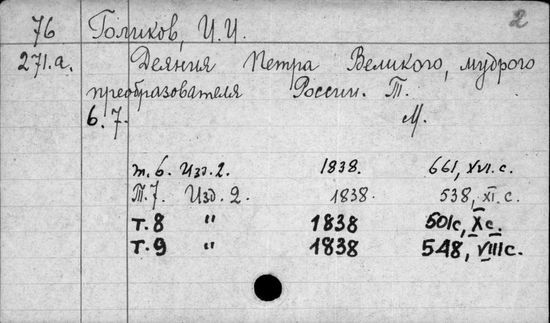 2
76 Голиков, И.И.
271.а. Деяния Петра Великого, мудрого
преобразователя России. Т.
6. 7. М.
т. 6. Изд. 2. 1838. 661, XVI. с.
Т. 7. Изд. 2. 1838. 538, XI. с.
т. 8 " 1838 501с, X с.
т. 9 " 1838 548, VIII с.